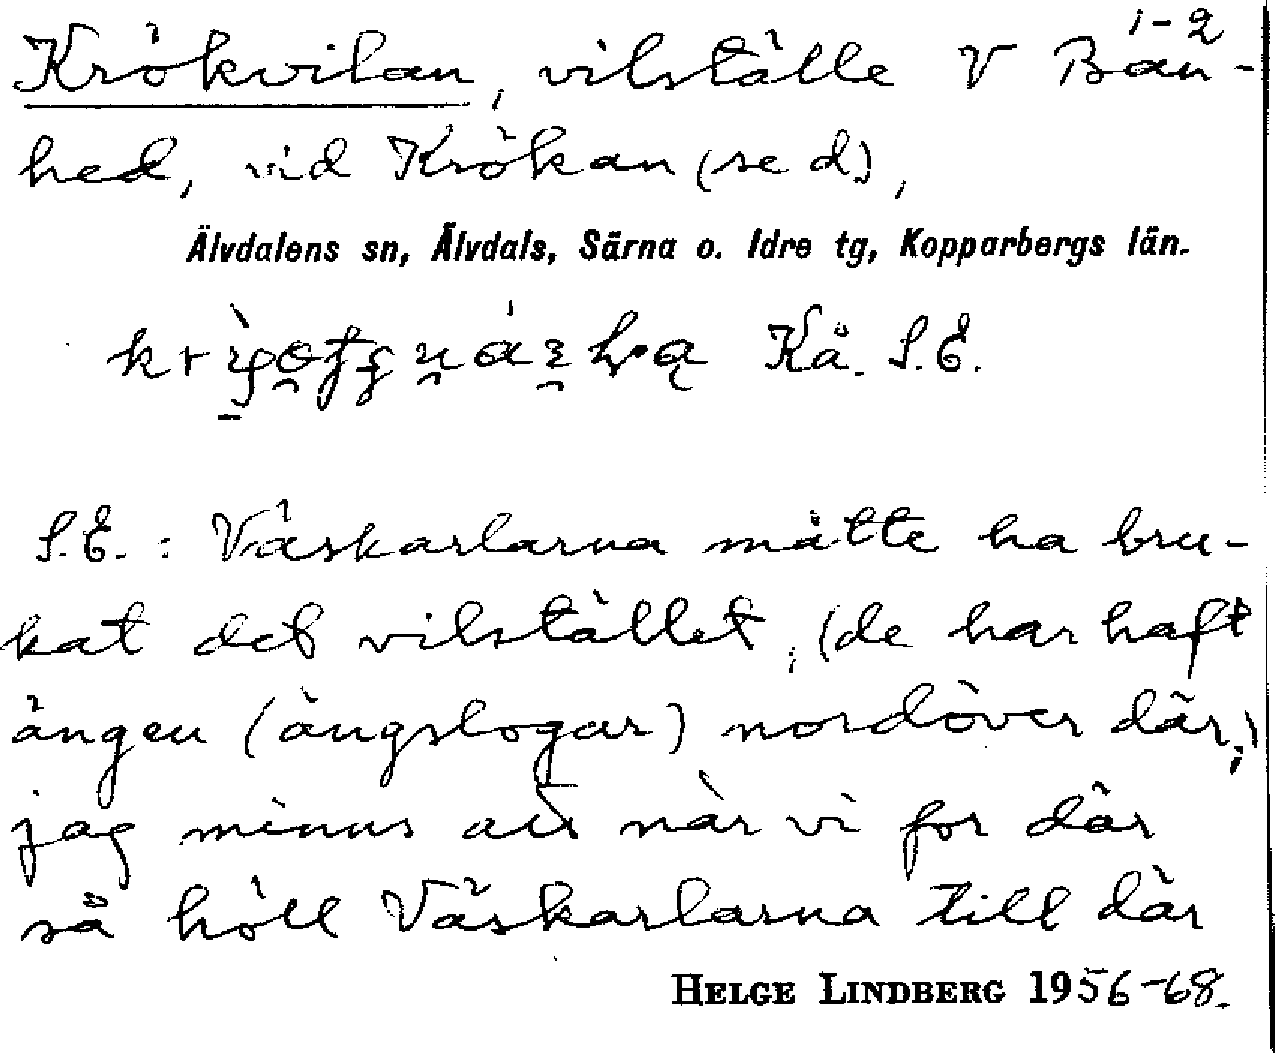 1-2
Krökvilan, vilställe V Bän-
hed, vid Krökan (se d),
Älvdalens sn, Älvdals, Särna o. Idre tg, Kopparbergs län.
Kå. S.E.
S.E. : Väskarlarna måtte ha bru-
kat det vilstället, (de har haft
ängen (ängslogar) nordöver där,)
jag minns att när vi for där
så höll Väskarlarna till där
HELGE LINDBERG 1956-68.